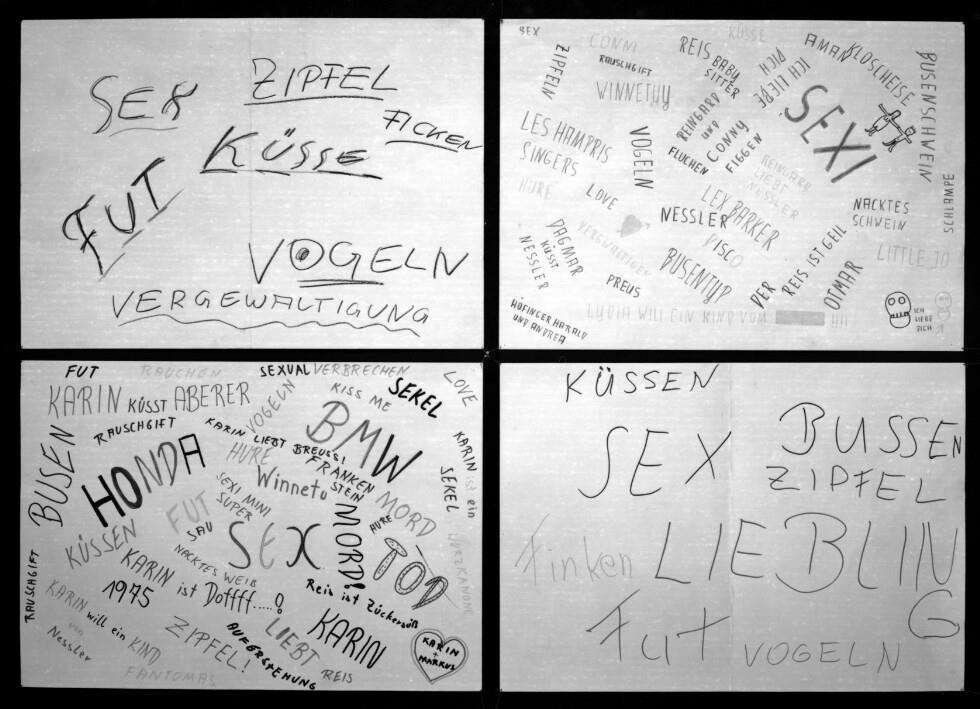 SEX
ZIPFEL
FICKEN
KÜSSE
FUT
VOGELN
VERGEWALTIGUNG
SEX
ZIPFELN
CONNI
RAUSCHGIFT
WINNETUU
KÜSSE
REIS BABY
SITTER
ICH LIEBE
DICH
AMAN
KLOSCHEISE
BUSENSCHWEIN
SEXI
LES HAMPRIS
SINGERS
VOGELN
REINGARD
UND
CONNY
FIGGEN
FLUCHEN
REINGARD
LIEBT
NESSLER
HURE
LOVE
NESSLER
LEX BARKER
DISCO
NACKTES
SCHWEIN
SCHLAMPE
LITTLE JO
DAGMAR
KÜSST
NESSLER
VERGWALTIGEN
PREUS
BUSENTYP
DER
REIS IST GEIL
OTMAR
HÖFINGER HARALD
UND ANDREA
LYDIA WILL EIN KIND VOM
ICH
LIEBE
DICH
FUT
RAUCHEN
SEXUALVERBRECHEN
KARIN KÜSST ABERER
VOGELN
KISS ME
SEKEL
LOVE
BUSEN
RAUSCHGIFT
KARIN LIEBT BREUSS!
BMW
HONDA
HURE
FRANKEN
STEIN
Winnetu
SEXI MINI
SUPER
MORD
KARIN ist ein
SEKEL
WURZKANONE
FUT
SAU
SEX
MORD!
HURE
TOD
KÜSSEN
NACKTES WEIB
KARIN ist Doffff.....!
1975
Reis ist Zückersüß
RAUSCHGIFT
KARIN
will ein KIND
von
Nessler
ZIPFEL!
AUFERSTEHUNG
LIEBT
KARIN
REIS
FANTOMAS
KARIN
+
MARKUS
KÜSSEN
SEX
BUSSEN
ZIPFEL
Finken
LIEBLIN
G
Fut
VOGELN